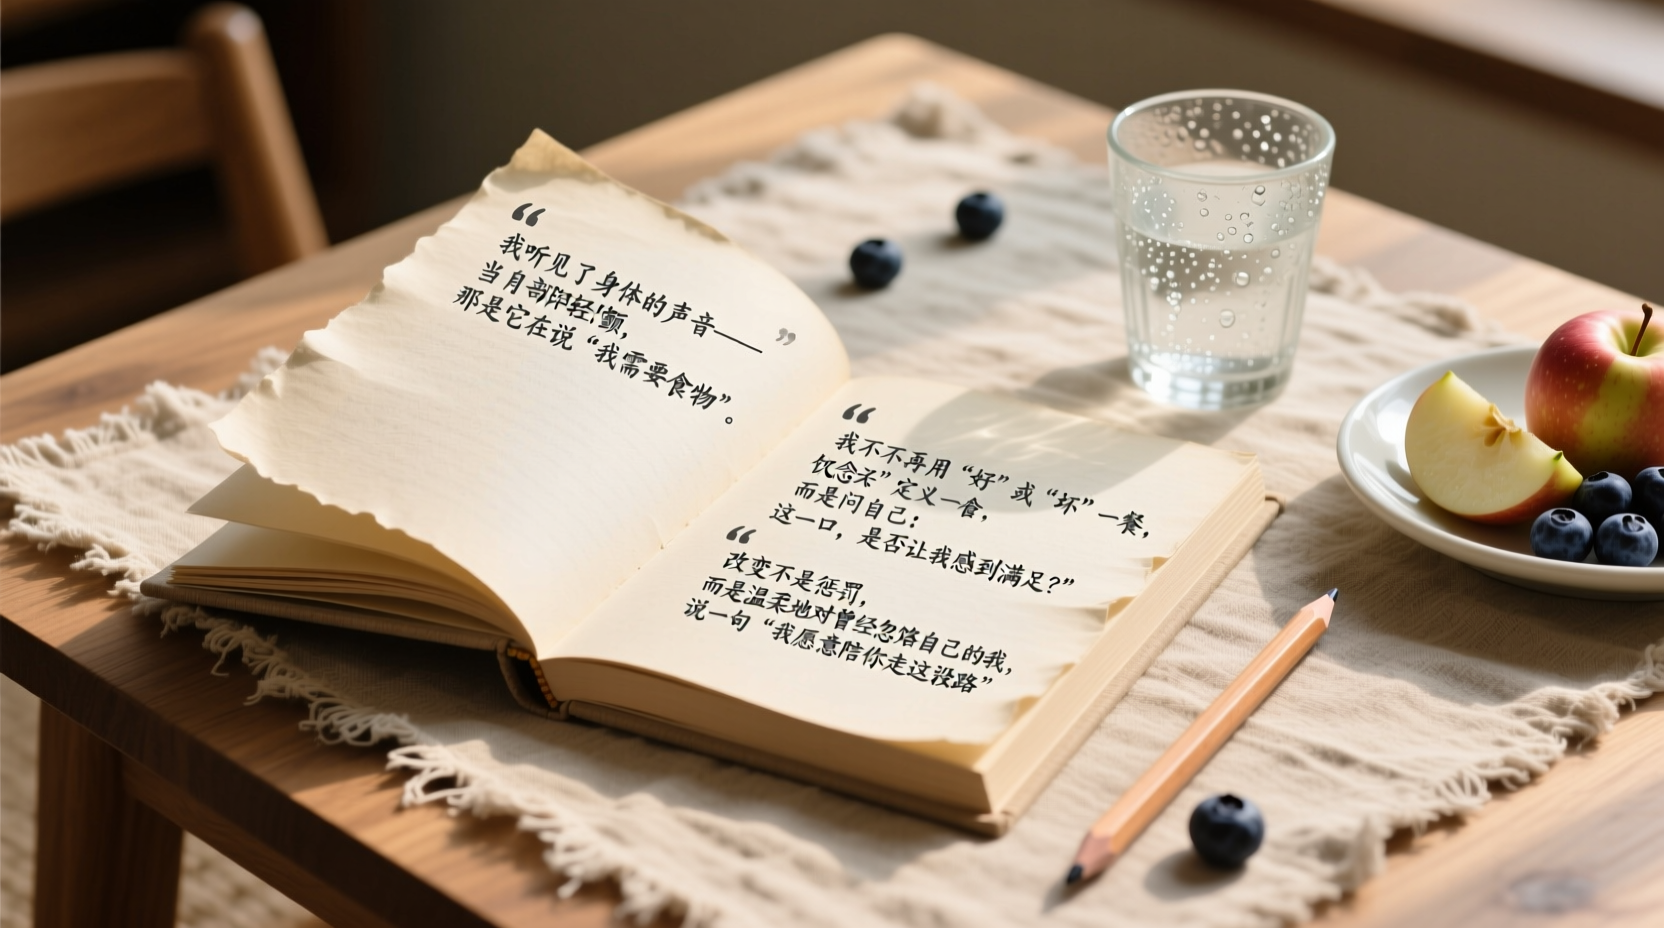 “
我听见了身体的声音——
”
当月部轻颤,
那是它在说“我需要食物”。
“
我不不再用“好”或“坏”一餐,
饮念”定义一食,
而是问自己:
这一口,是否让我感到满足?”
“
改变不是惩罚,
而是温柔地对曾经忽略自己的我,
说一句“我愿意陪你走这段路”